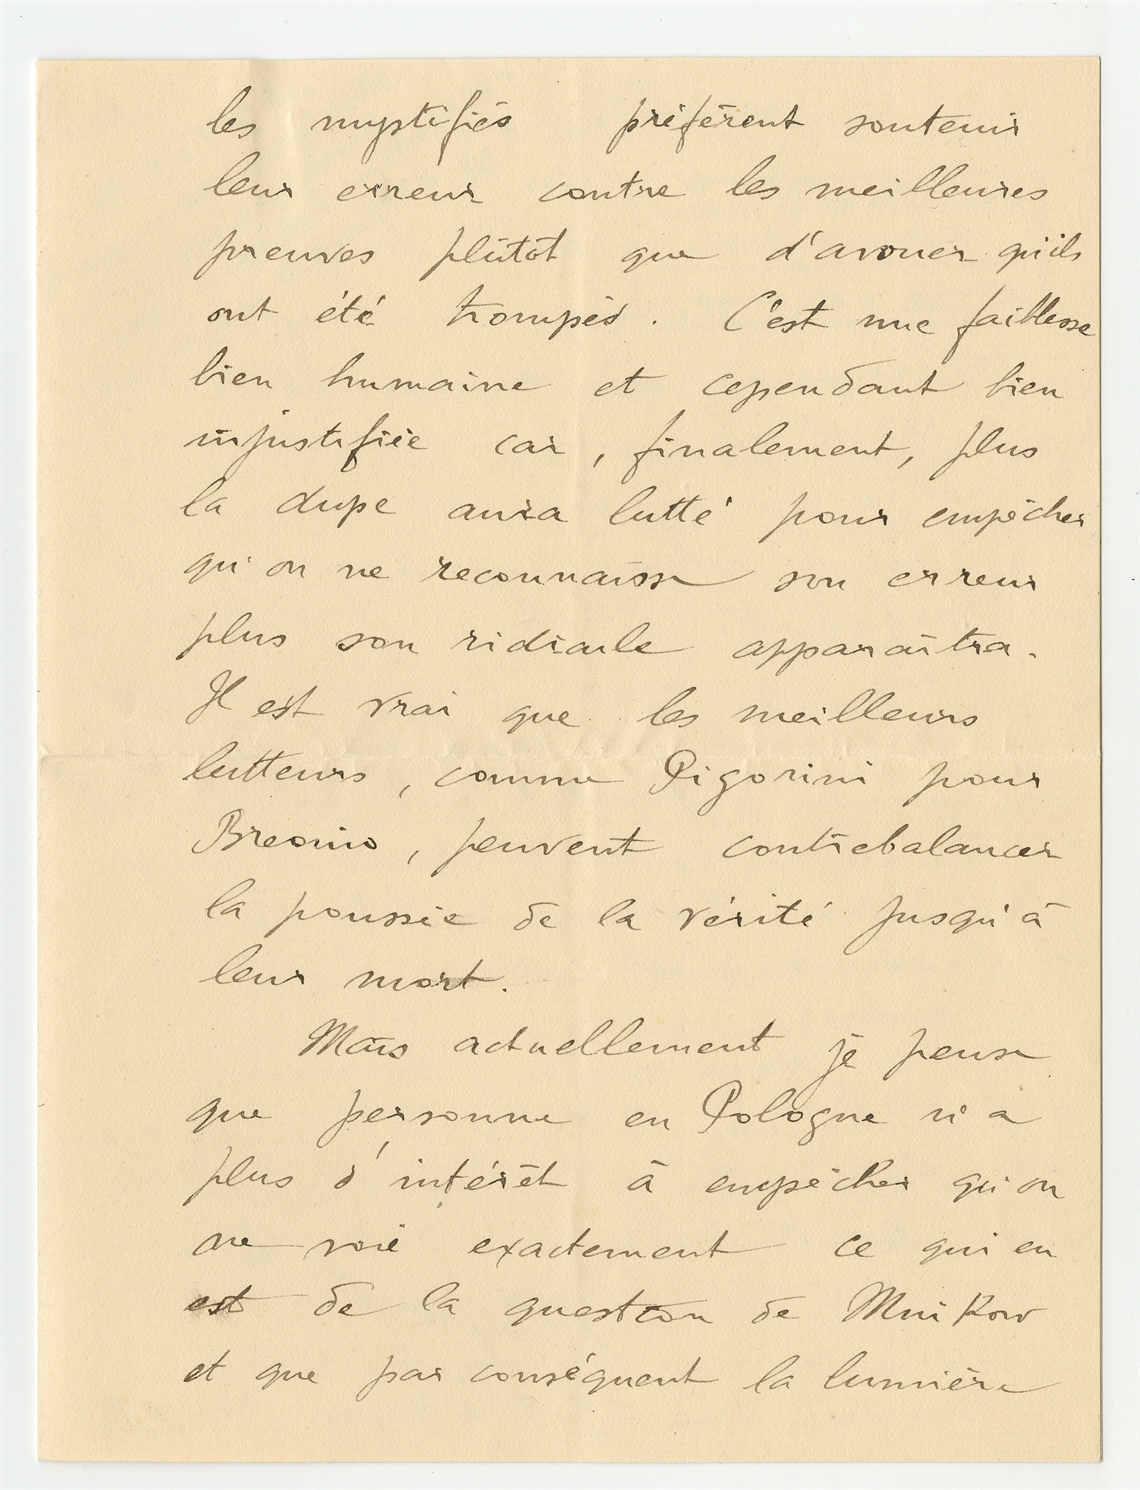 les mystifiés préfèrent soutenir
leur erreur contre les meilleures
preuves plutôt que d'avouer qu'ils
ont été trompés. C'est une faiblesse
bien humaine et cependant bien
injustifiée car, finalement, plus
la dupe aura lutté pour empêcher
qu'on ne reconnaisse son erreur
plus son ridicule apparaîtra.
Il est vrai que les meilleurs
lutteurs, comme Pigorini pour
Breonio, peuvent contrebalancer
la poussée de la vérité jusqu'à
leur mort.
Mais actuellement je pense
que personne en Pologne n'a
plus d'intérêt à empêcher qu'on
ne voie exactement ce qui en
est de la question de Mnikow
et que par conséquent la lumière